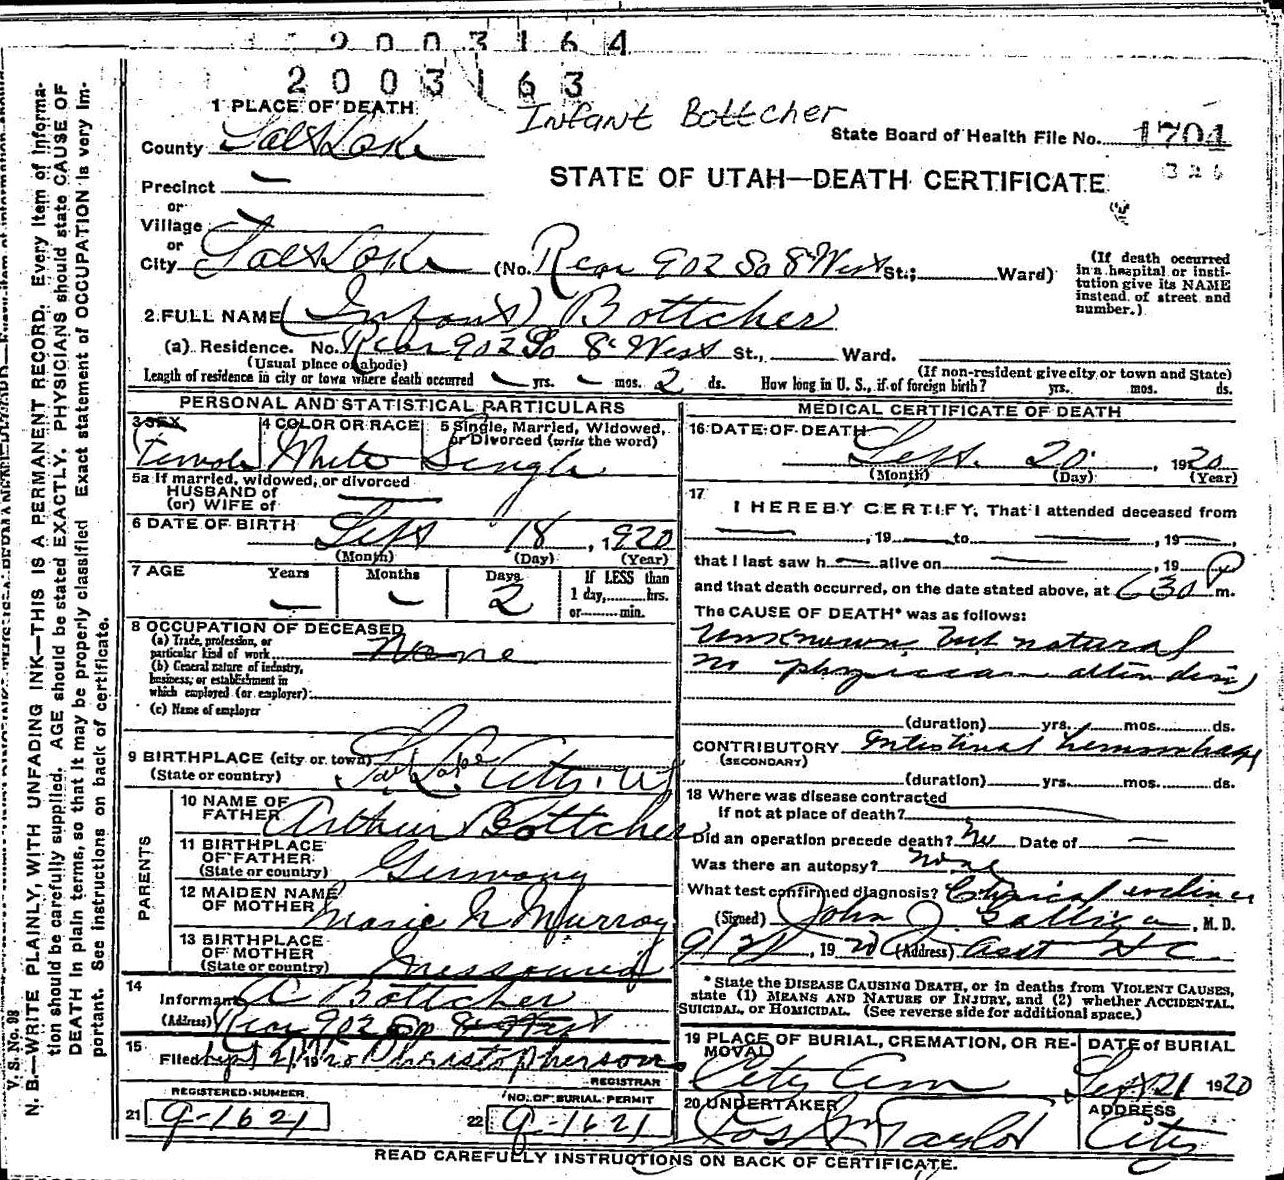 2003164
2003163
Infant Bottcher
1 PLACE OF DEATH
County Salt Lake
State Board of Health File No. 1704
326
STATE OF UTAH—DEATH CERTIFICATE
Precinct —
or
Village
or
City Salt Lake (No. Rear 902 So 8 West St.; Ward)
(If death occurred in a hospital or institution give its NAME instead of street and number.)
2. FULL NAME (Infant) Bottcher
(a) Residence. No. Rear 902 So 8 West St., Ward.
(Usual place of abode) (If non-resident give city or town and State)
Length of residence in city or town where death occurred — yrs. — mos. 2 ds. How long in U. S., if of foreign birth? yrs. mos. ds.
PERSONAL AND STATISTICAL PARTICULARS
3 SEX 4 COLOR OR RACE 5 Single, Married, Widowed, or Divorced (write the word)
Female White Single
5a If married, widowed, or divorced
HUSBAND of
(or) WIFE of —
6 DATE OF BIRTH Sept 18, 1920
(Month) (Day) (Year)
7 AGE Years Months Days If LESS than
— — 2 1 day, hrs.
or min.
8 OCCUPATION OF DECEASED
(a) Trade, profession, or
particular kind of work None
(b) General nature of industry,
business, or establishment in
which employed (or employer)
(c) Name of employer
9 BIRTHPLACE (city or town) Salt Lake City, Ut
(State or country)
PARENTS
10 NAME OF
FATHER Arthur Bottcher
11 BIRTHPLACE
OF FATHER Germany
(State or country)
12 MAIDEN NAME
OF MOTHER Marie N Murray
13 BIRTHPLACE
OF MOTHER Missouri
(State or country)
14
Informant A Bottcher
(Address) Rear 902 So 8 West
15
Filed Sept 21, 1920 Christopherson
REGISTRAR
REGISTERED NUMBER NO. OF BURIAL PERMIT
21 9-1621 22 9-1621
MEDICAL CERTIFICATE OF DEATH
16 DATE OF DEATH
Sept. 20, 1920
(Month) (Day) (Year)
17
I HEREBY CERTIFY, That I attended deceased from
—, 19 to —, 19—
that I last saw h— alive on —, 19
and that death occurred, on the date stated above, at 630 P m.
The CAUSE OF DEATH* was as follows:
Unknown but natural
no physician attending
(duration) yrs. mos. ds.
CONTRIBUTORY Intestinal hemorrhage
(SECONDARY)
(duration) yrs. mos. ds.
18 Where was disease contracted
If not at place of death?
Did an operation precede death? No Date of —
Was there an autopsy? None
What test confirmed diagnosis? Clinical evidence
(Signed) John J Galligan, M. D.
9/21, 1920 (Address) Asst H C.
*State the DISEASE CAUSING DEATH, or in deaths from VIOLENT CAUSES, state (1) MEANS AND NATURE OF INJURY, and (2) whether ACCIDENTAL, SUICIDAL, or HOMICIDAL. (See reverse side for additional space.)
19 PLACE OF BURIAL, CREMATION, OR REMOVAL DATE of BURIAL
City Cem Sept 21 1920
20 UNDERTAKER ADDRESS
Jos Wm Taylor City
READ CAREFULLY INSTRUCTIONS ON BACK OF CERTIFICATE.
V. S. No. 98
N. B.—WRITE PLAINLY, WITH UNFADING INK—THIS IS A PERMANENT RECORD. Every item of information should be carefully supplied. AGE should be stated EXACTLY. PHYSICIANS should state CAUSE OF DEATH in plain terms, so that it may be properly classified. Exact statement of OCCUPATION is very important. See instructions on back of certificate.